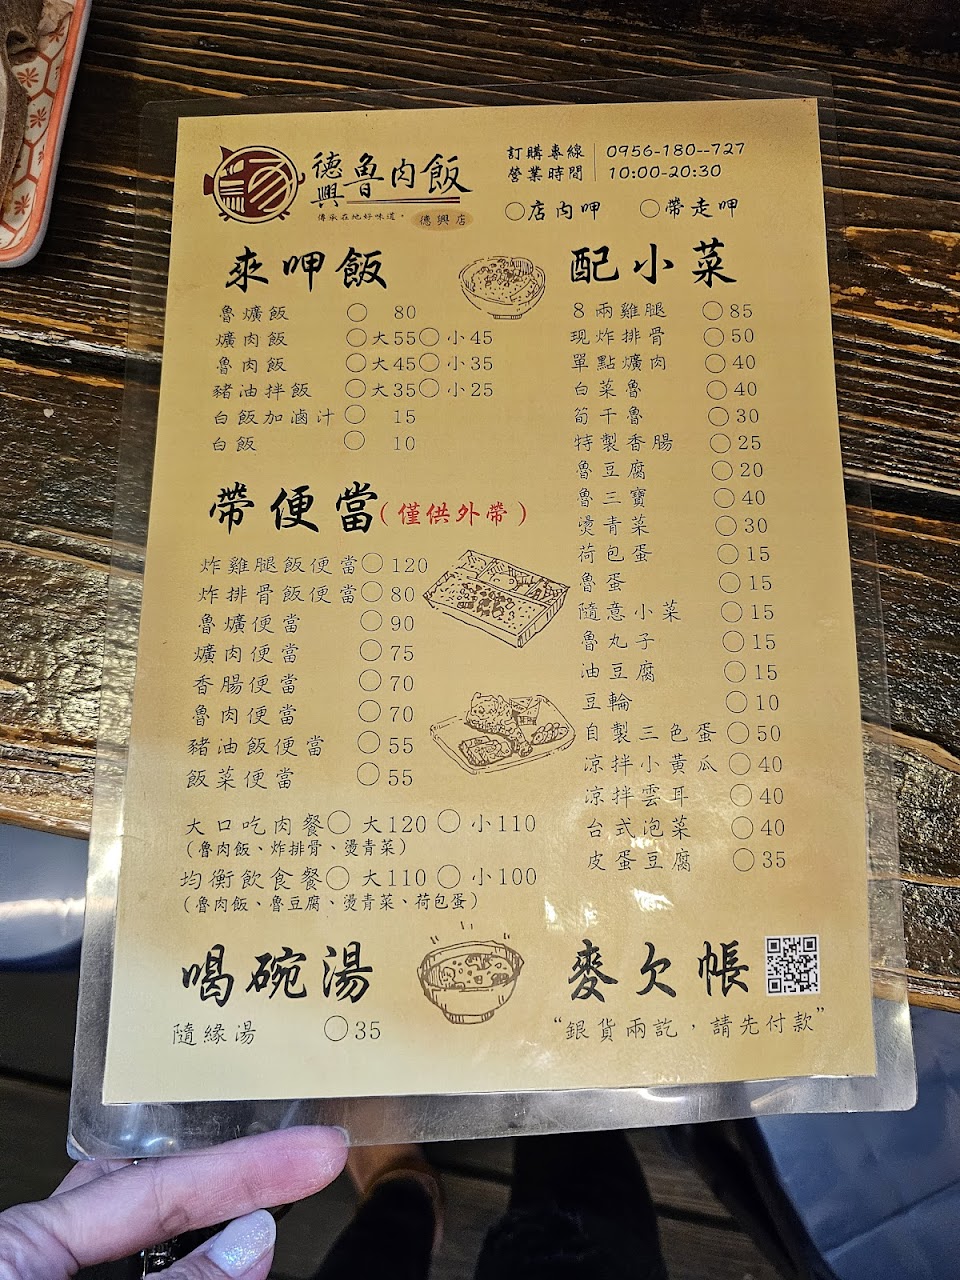 德興魯肉飯
傳承在地好味道。 德興店
訂購專線 0956-180--727
營業時間 10:00-20:30
○店內呷 ○帶走呷
來呷飯
魯爌飯 ○ 80
爌肉飯 ○大55○小45
魯肉飯 ○大45○小35
豬油拌飯 ○大35○小25
白飯加滷汁 ○ 15
白飯 ○ 10
帶便當(僅供外帶)
炸雞腿飯便當○120
炸排骨飯便當○80
魯爌便當 ○90
爌肉便當 ○75
香腸便當 ○70
魯肉便當 ○70
豬油飯便當 ○55
飯菜便當 ○55
大口吃肉餐○ 大120 ○ 小110
(魯肉飯、炸排骨、燙青菜)
均衡飲食餐○ 大110 ○ 小100
(魯肉飯、魯豆腐、燙青菜、荷包蛋)
喝碗湯
隨緣湯 ○35
配小菜
8兩雞腿 ○85
現炸排骨 ○50
單點爌肉 ○40
白菜魯 ○40
筍干魯 ○30
特製香腸 ○25
魯豆腐 ○20
魯三寶 ○40
燙青菜 ○30
荷包蛋 ○15
魯蛋 ○15
隨意小菜 ○15
魯丸子 ○15
油豆腐 ○15
豆輪 ○10
自製三色蛋 ○50
涼拌小黃瓜 ○40
涼拌雲耳 ○40
台式泡菜 ○40
皮蛋豆腐 ○35
麥欠帳
“銀貨兩訖，請先付款”